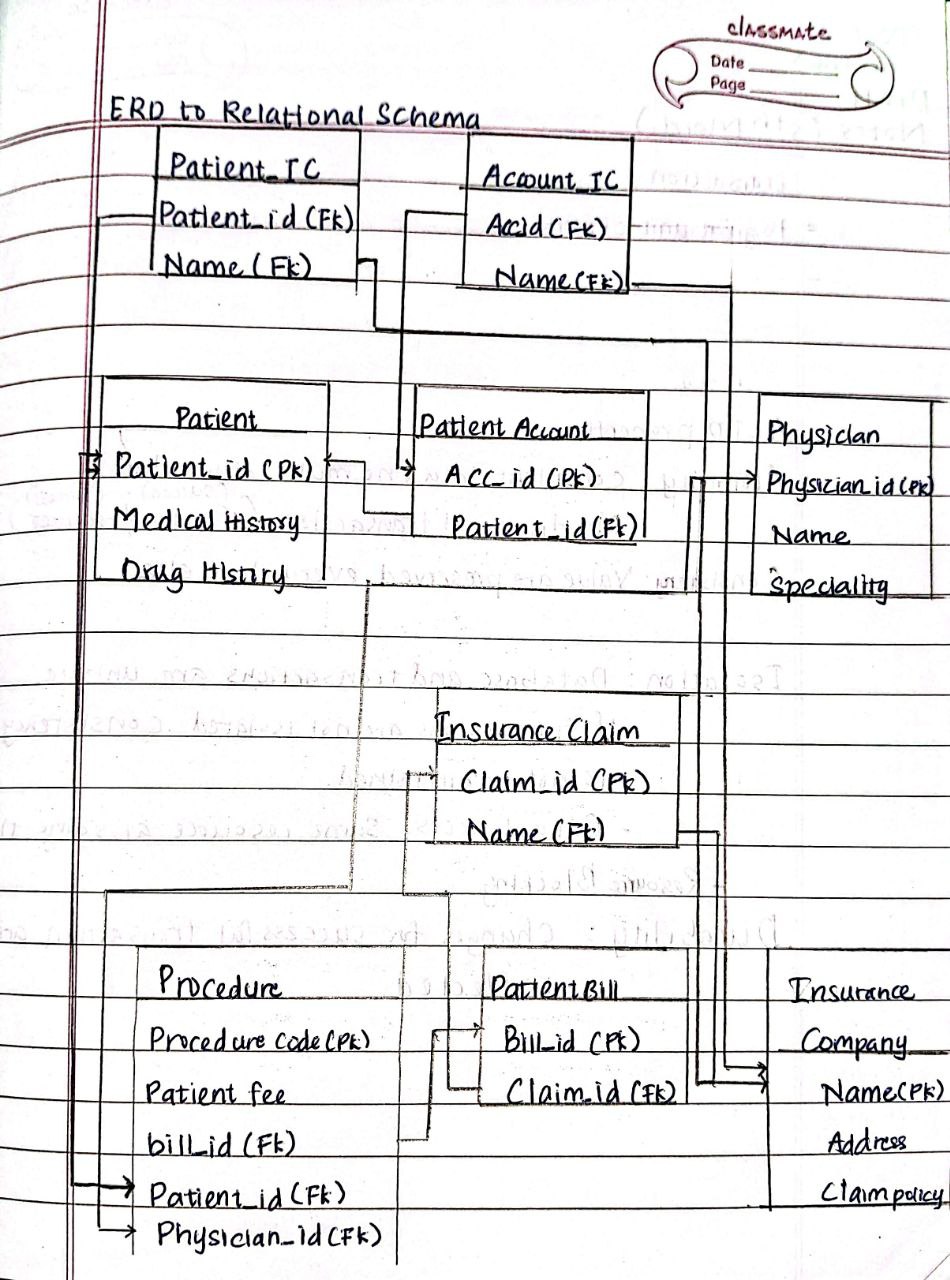 classmate
Date
Page
ERD to Relational Schema
Patient_IC
Patient_id (Fk)
Name (Fk)
Account_IC
Accid (Fk)
Name (Fk)
Patient
Patient_id (Pk)
Medical History
Drug History
Patient Account
Acc_id (Pk)
Patient_id (Fk)
Physician
Physizian_id (Pk)
Name
Speciality
Insurance Claim
Claim_id (Pk)
Name (Fk)
Procedure
Procedure Code (Pk)
Patient fee
bill_id (Fk)
Patient_id (Fk)
Physician_id (Fk)
Patient Bill
Bill_id (Pk)
Claim_id (Fk)
Insurance
Company
Name (Pk)
Address
Claim policy